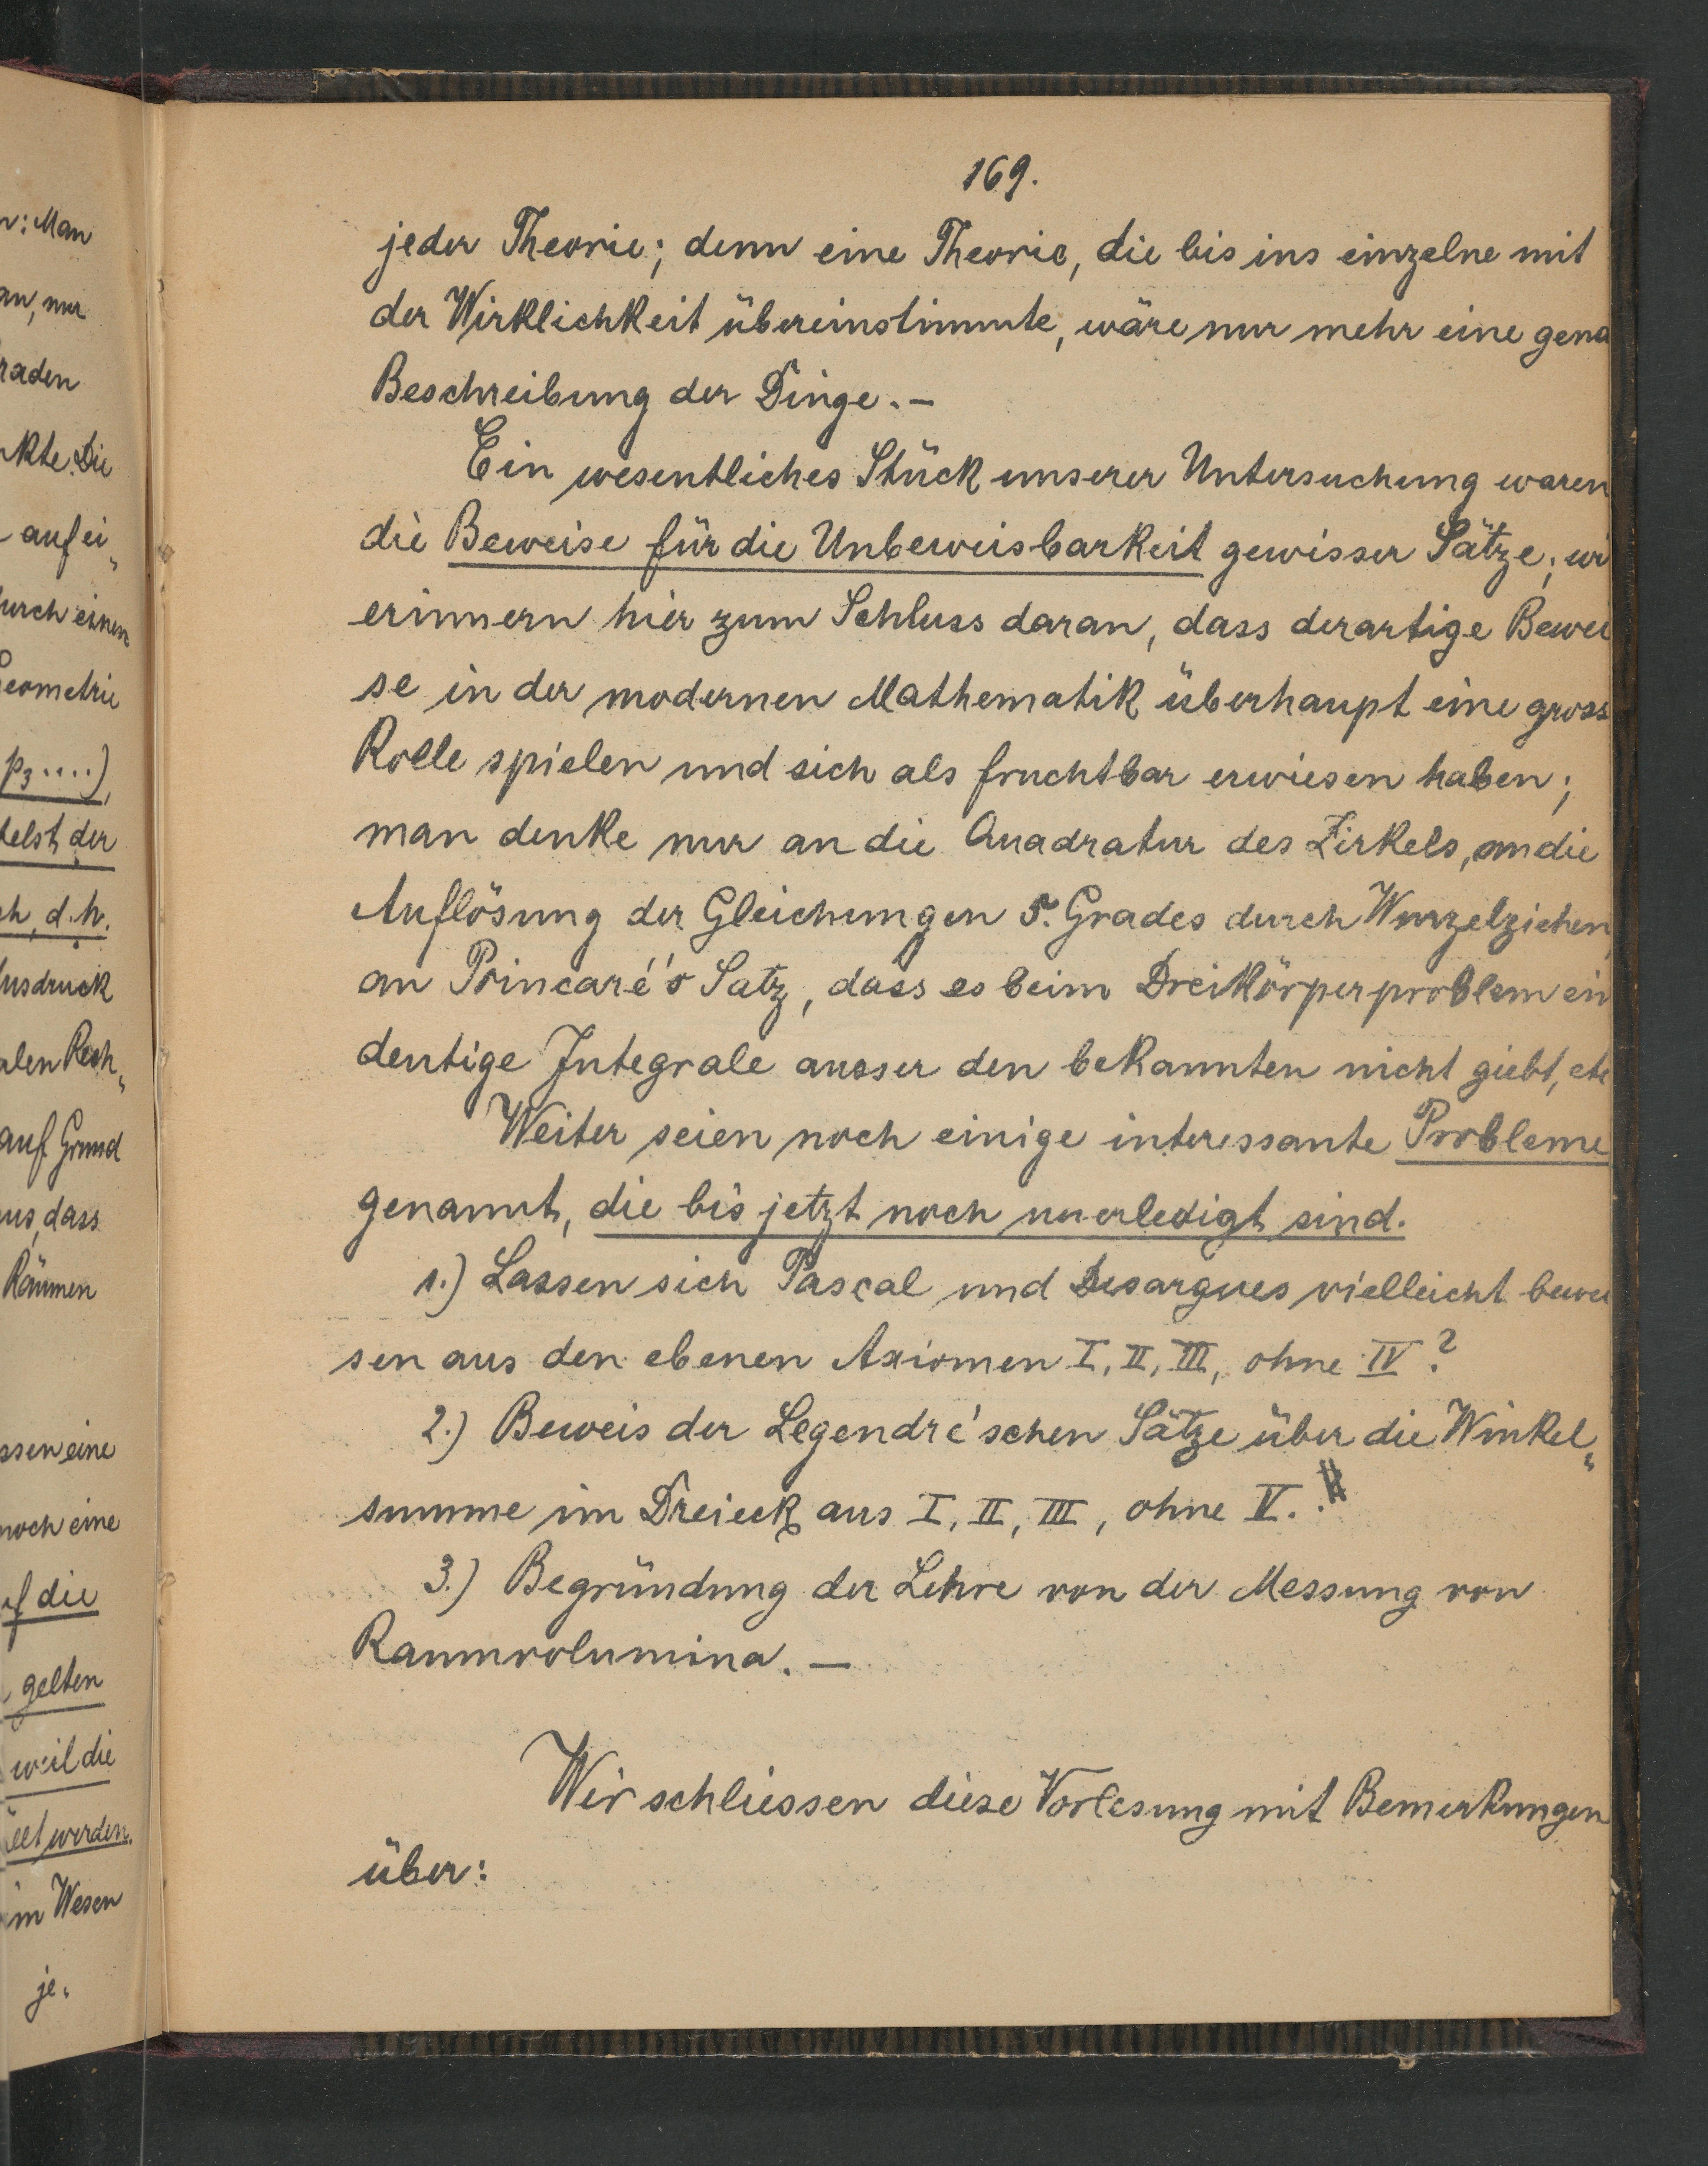 169.
jeder Theorie; denn eine Theorie, die bis ins einzelne mit
der Wirklichkeit übereinstimmte, wäre nur mehr eine gena
Beschreibung der Dinge. —
Ein wesentliches Stück unserer Untersuchung waren
die Beweise für die Unbeweisbarkeit gewisser Sätze; wi
erinnern hier zum Schluss daran, dass derartige Bewei
se in der modernen Mathematik überhaupt eine gross
Rolle spielen und sich als fruchtbar erwiesen haben;
man denke nur an die Quadratur des Zirkels, an die
Auflösung der Gleichungen 5. Grades durch Wurzelziehen,
an Poincaré's Satz, dass es beim Dreikörperproblem ein
deutige Integrale ausser den bekannten nicht giebt, etc
Weiter seien noch einige interessante Probleme
genannt, die bis jetzt noch unerledigt sind.
1.) Lassen sich Pascal und Desargues vielleicht bewei
sen aus den ebenen Axiomen I, II, III, ohne IV?
2.) Beweis der Legendre'schen Sätze über die Winkel„
summe im Dreieck aus I, II, III, ohne V.
3.) Begründung der Lehre von der Messung von
Raumvolumina. —
Wir schliessen diese Vorlesung mit Bemerkungen
über:
n: Man
an, nur
raden
nkte. Die
auf ei„
durch einen
Geometrie
p₃ ....),
telst der
ch, d.h.
usdruck
alen Rech„
auf Grund
us, dass
Räumen
ssen eine
noch eine
uf die
gelten
weil die
llt werden.
im Wesen
je„